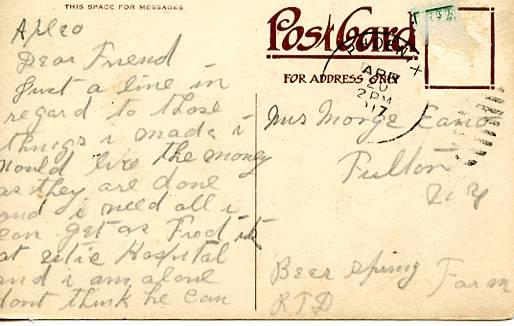 THIS SPACE FOR MESSAGES
Apl 20
Dear Friend
Just a line in
regard to those
things i made i
would live the money
as they are done
and i need all i
can get as Fred is
at Utic Hospital
and i am alone
dont think he can
Post Card
FOR ADDRESS ONLY
APR
20
2 PM
Mrs
Fulton
N.Y
Beer Spring Farm
RFD